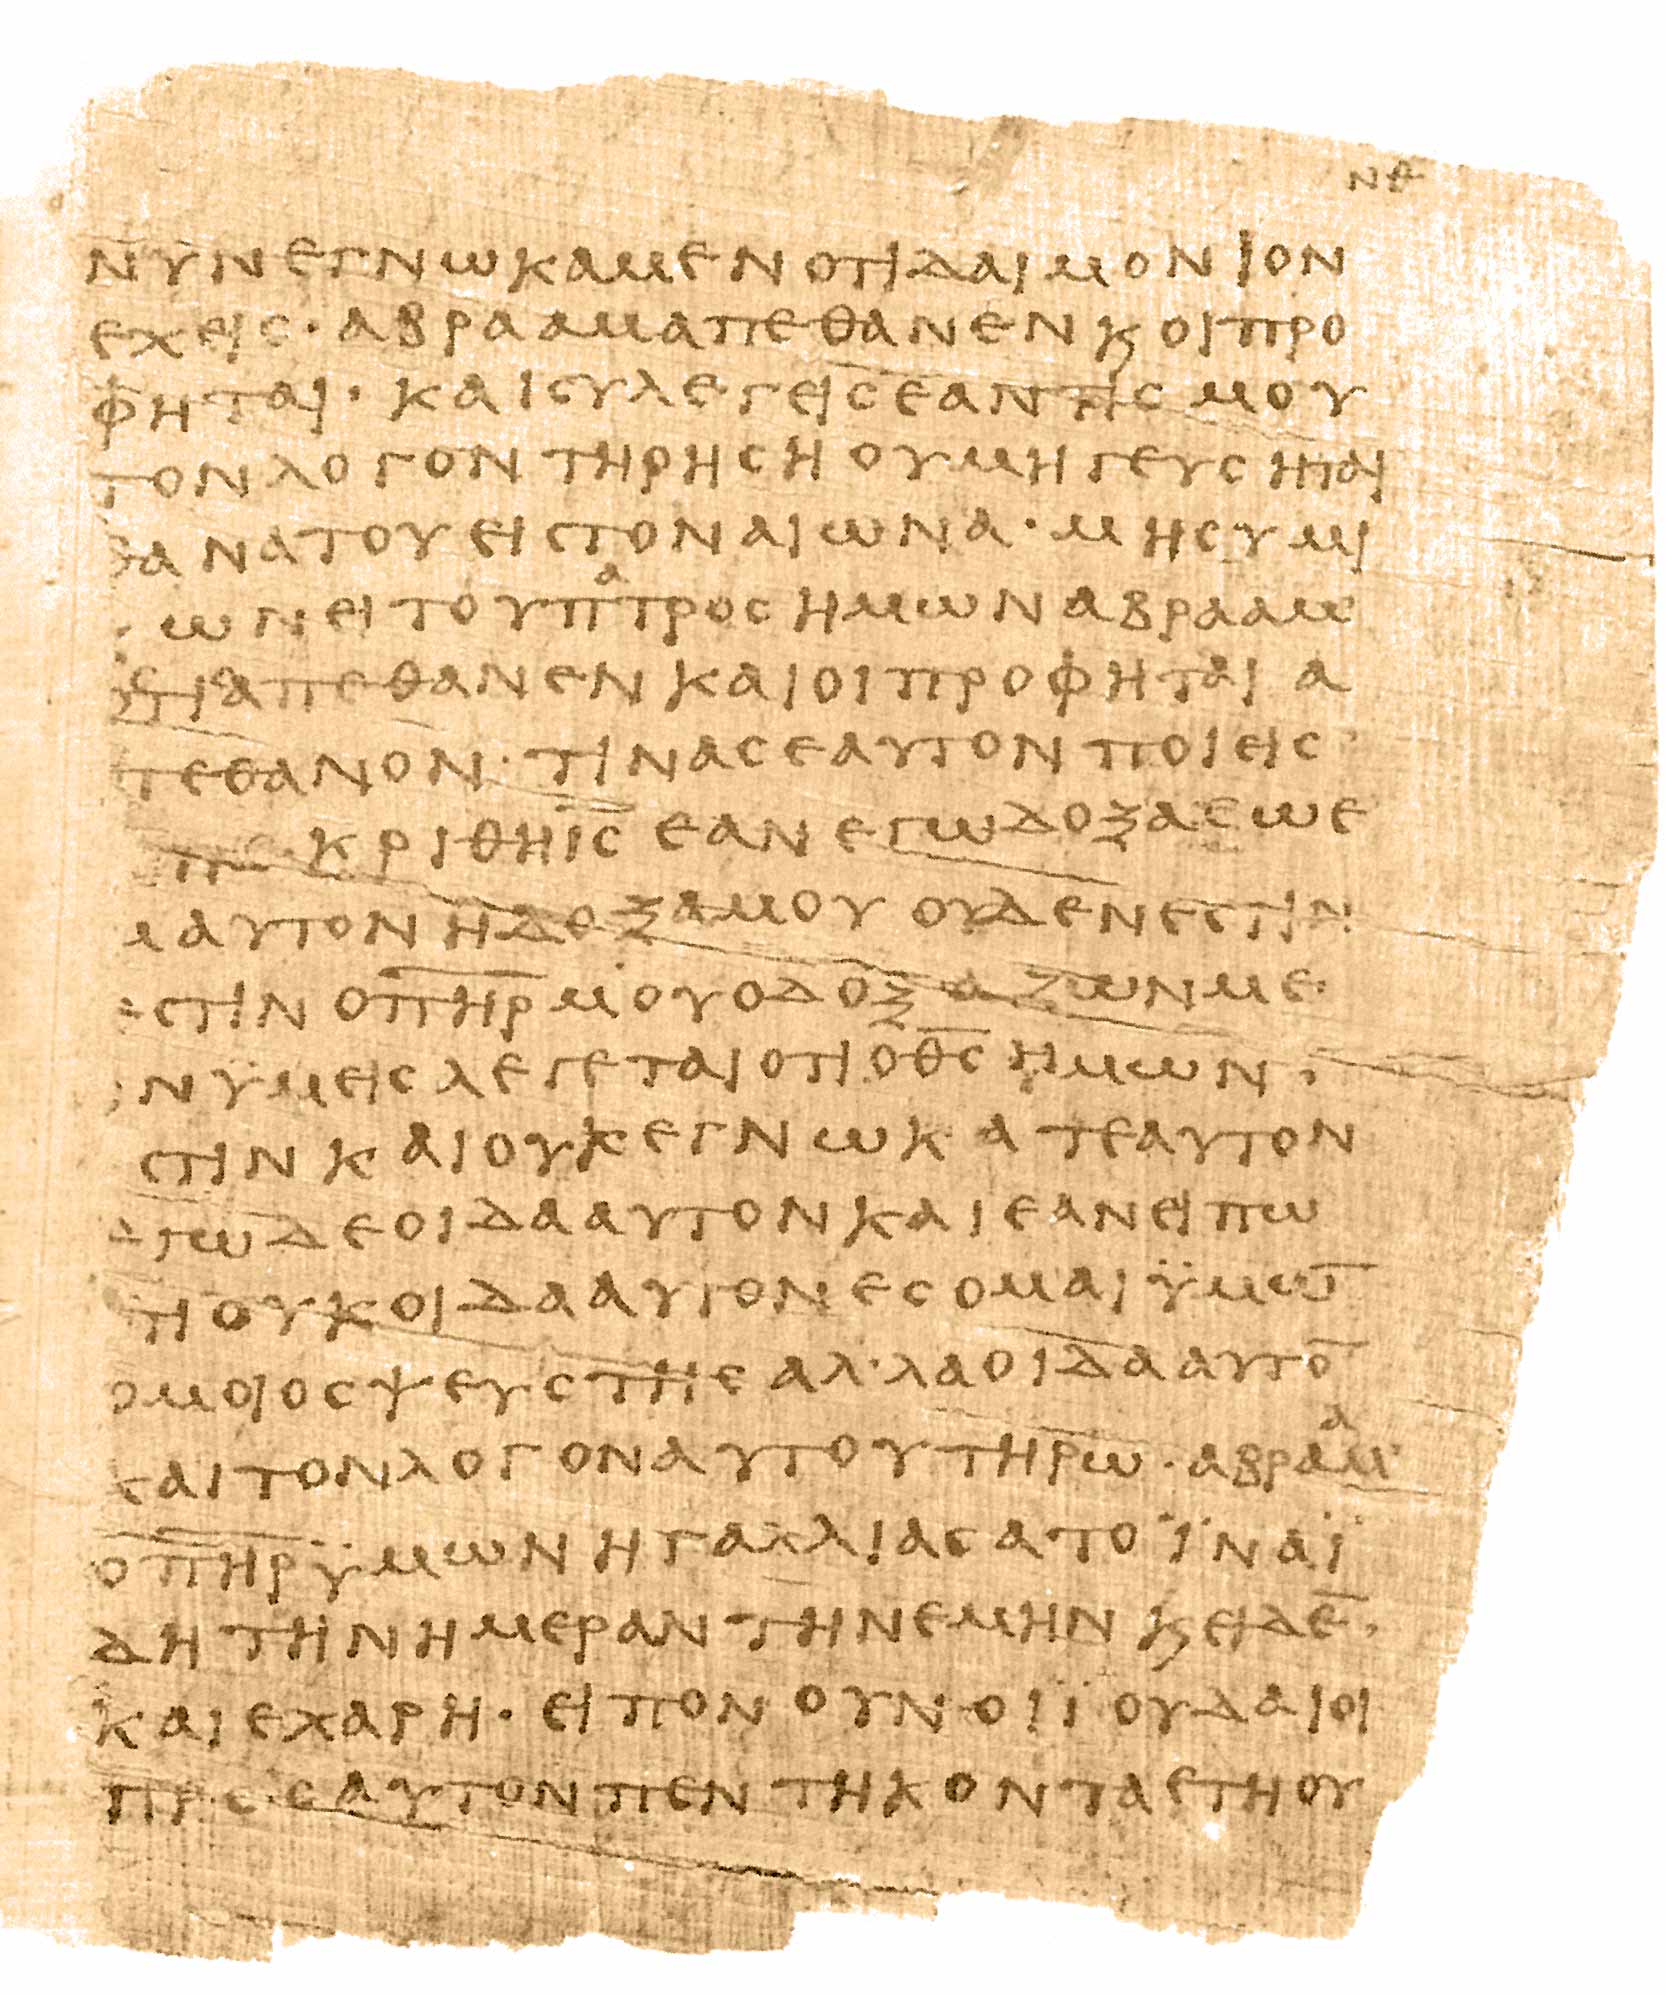 νθ
νυνεγνωκαμενοτιδαιμονιον
εχεις·αβρααμαπεθανενϗοιπρο
φηται·καισυλεγειςεαντιςμου
τονλογοντηρησηουμηγευσηται
θανατουειςτοναιωνα·μησυμι
ωνειτουπατροςημωναβρααμ
οτιαπεθανενκαιοιπροφηταια
πεθανον·τινασεαυτονποιεις
πεκριθηις̅εανεγωδοξασωε
μαυτονηδοξαμουουδενεστιν
εστινοπ̅η̅ρ̅μουοδοξαζωνμε·
νϋμειςλεγεταιοτιοθ̅ς̅ημων
στινκαιουκεγνωκατεαυτον
εγωδεοιδααυτονκαιεανειπω
τιουκοιδααυτονεσομαιϋμω̅
ομοιοςψευστηςαλ᾿λαοιδααυτο̅
καιτονλογοναυτουτηρω·αβρααμ
οπ̅η̅ρ̅ϋμωνηγαλλιασατοϊναϊ
δητηνημεραντηνεμηνϗειδε̅
καιεχαρη·ειπονουνοιϊουδαιοι
προςαυτονπεντηκονταετηου